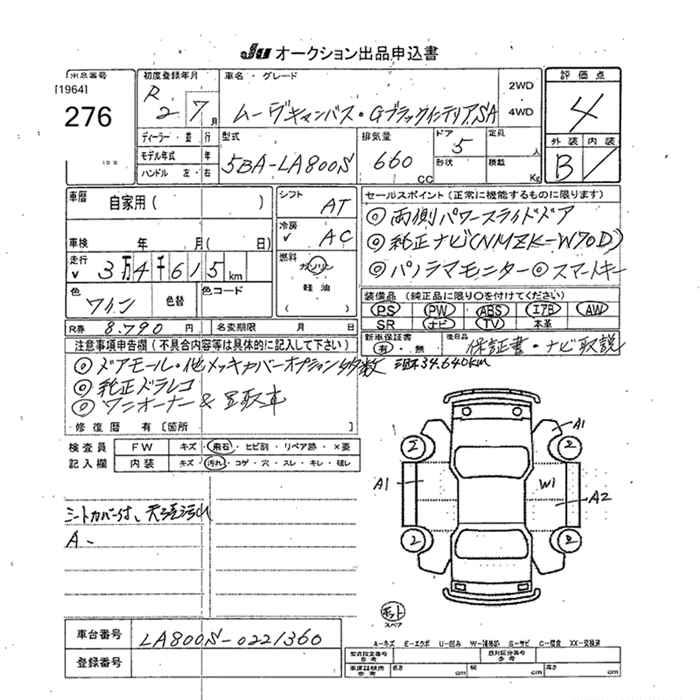 JU オークション出品申込書
出品番号
[1964]
276
初度登録年月 R 2 7 月
車名・グレード
ムーヴキャンバス・GブラックインテリアSA
2WD ・ 4WD
評価点
4
外装 内装
B
ディーラー・並 行
モデル年式 年
ハンドル 左・右
型式
5BA-LA800S
排気量
660 CC
ドア 5
形状
定員 人
積載 Kg
車歴 自家用( )
車検 年 月( 日)
走行 3万4千615km
色 ワイン 色替 色コード
R券 8.790 円 名変期限 月 日
シフト AT
冷房 AC
燃料 ガソリン
軽油
( )
セールスポイント(正常に機能するものに限ります)
◎両側パワースライドドア
◎純正ナビ(NMZK-W70D)
◎パノラマモニター◎スマートキー
装備品(純正品に限り○を付けてください)
PS PW ABS エアB AW
SR ナビ TV 本革
新車保証書 有・無
後日品 保証書・ナビ取説
注意事項申告欄(不具合内容等は具体的に記入して下さい)
◎ドアモール・他メッキカバーオプション多数
34.640km
◎純正ドラレコ
◎ワンオーナー&買取車
修復歴 有〔箇所 〕
検査員 記入欄
FW キズ・飛石・ヒビ割・リペア跡・×要
内装 キズ・汚れ・コゲ・穴・スレ・キレ・破レ
シートカバー付、天張汚れ
A-
A1
2 2
A1 W1 A2
2 2
スペア
車台番号 LA800S-0221360
登録番号
A-キズ E-エクボ U-凹み W-補修跡 S-サビ C-腐食 XX-交換済
型式指定番号 参考
類別区分番号 参考
車庫証明用 参考 長さ cm 幅 cm 高さ cm